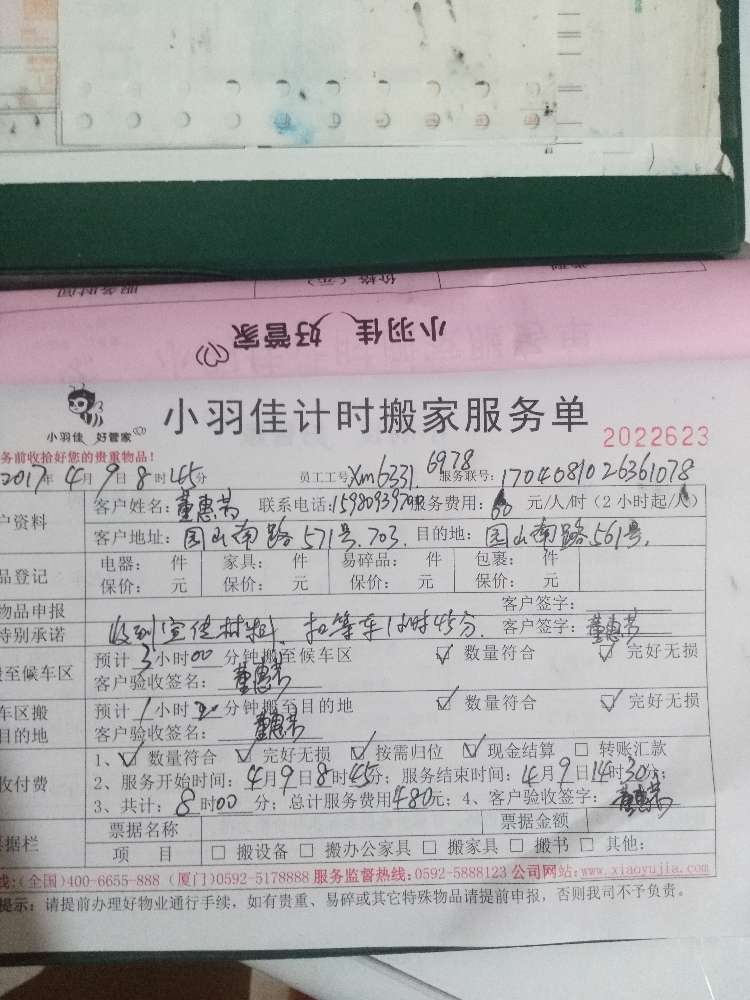 小羽佳 好管家
小羽佳 好管家
小羽佳计时搬家服务单
2022623
务前收拾好您的贵重物品！
2017年4月9日8时45分 员工工号Xm6331. 6978 服务联号：1704081026361078
户资料 客户姓名：董惠 联系电话：服务费用：60 元/人/时（2小时起/人）
客户地址：园山南路571号.703. 目的地：园山南路561号.
品登记 电器： 件 家具： 件 易碎品： 件 包裹： 件
保价： 元 保价： 元 保价： 元 保价： 元
物品申报 客户签字：
特别承诺 收到宣传材料、扣等车1小时45分. 客户签字：董惠
至候车区 预计3小时00分钟搬至候车区 ☑ 数量符合 ☑ 完好无损
客户验收签名：董惠
车区搬 预计1小时分钟搬至目的地 ☑ 数量符合 ☑ 完好无损
目的地 客户验收签名：董惠
收付费 1、☑ 数量符合 ☑ 完好无损 ☑ 按需归位 ☑ 现金结算 □ 转账汇款
2、服务开始时间：4月9日8时45分；服务结束时间：4月9日14时30分；
3、共计：8时00分；总计服务费用480元；4、客户验收签字：董惠
票据名称 票据金额
据栏 项 目 □ 搬设备 □ 搬办公家具 □ 搬家具 □ 搬书 □ 其他：
线：(全国)400-6655-888 (厦门)0592-5178888 服务监督热线：0592-5888123 公司网站：www.xiaoyujia.com
提示：请提前办理好物业通行手续，如有贵重、易碎或其它特殊物品请提前申报，否则我司不予负责。